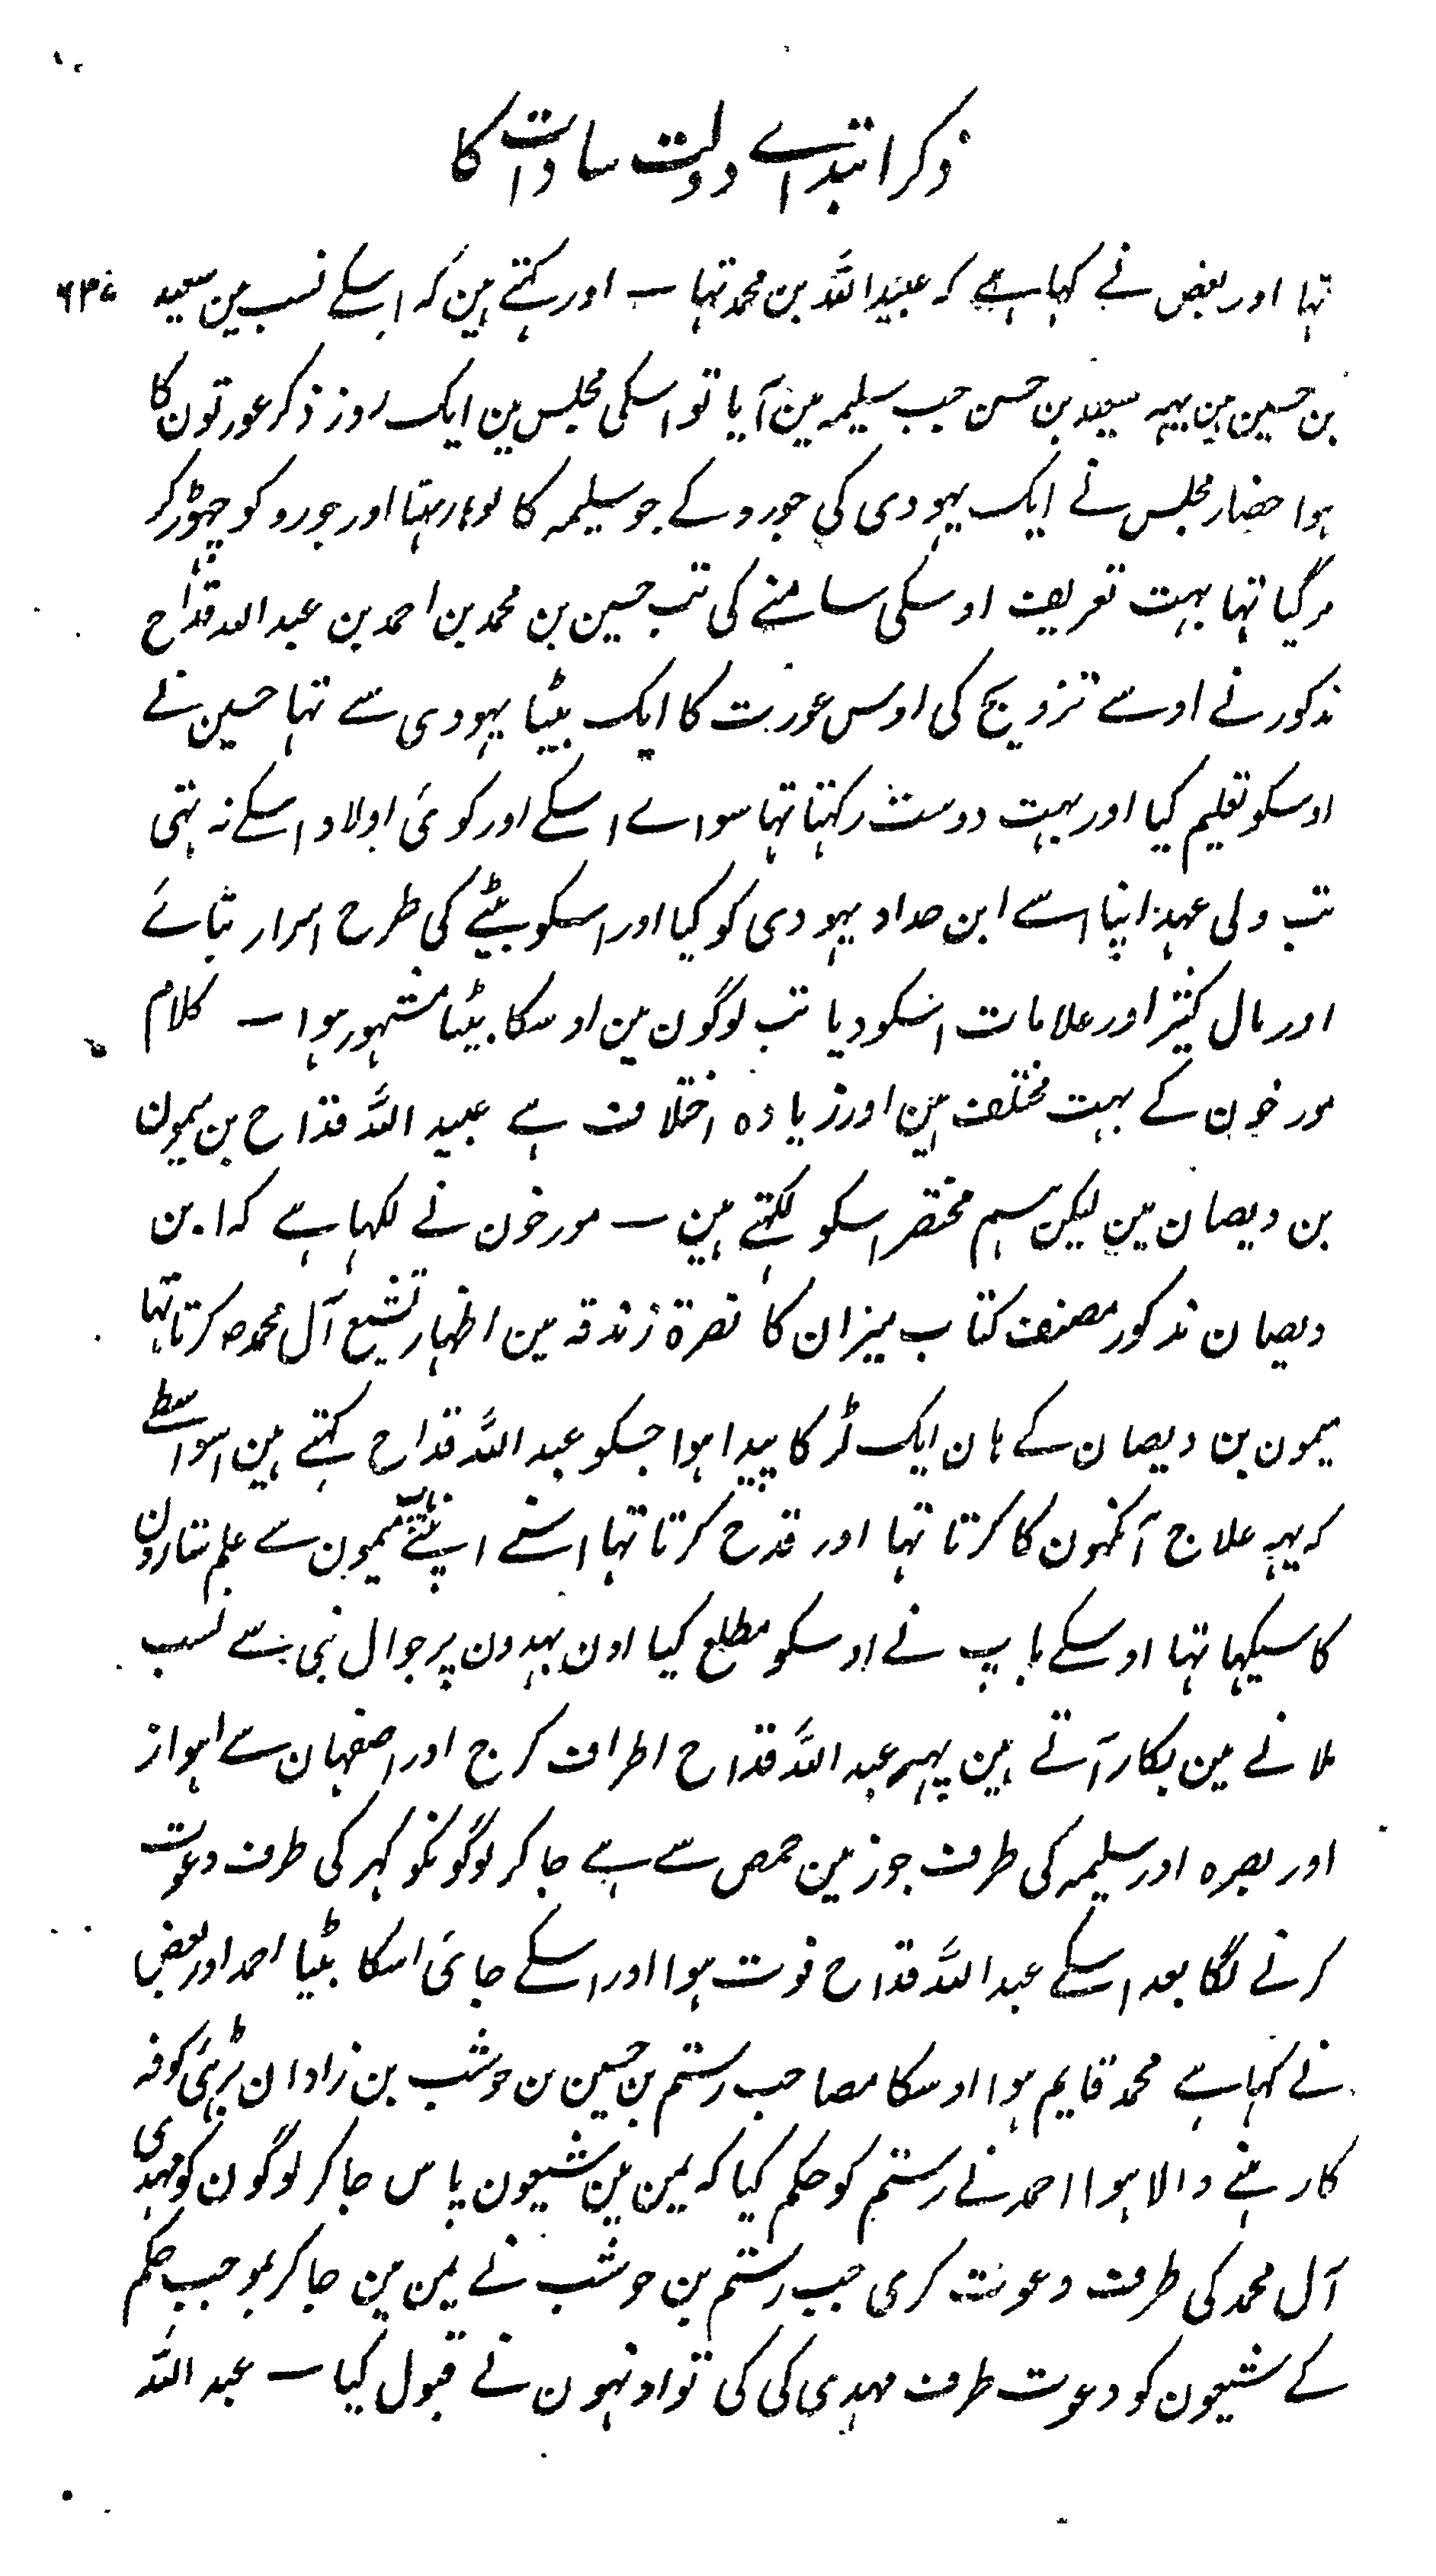 ذکر ابتداے دولت سادات کا
تہا اور بعض نے کہا ہے کہ عبیداللہ بن محمد تہا ۔ اور کہتے ہین کہ اسکے نسب مین سعید
بن حسین ہین یہہ سعید بن حسن جب سلیمہ مین آیا تو اسکی مجلس مین ایک روز ذکر عورتون کا
ہوا حضار مجلس نے ایک یہودی کی جورو کے جو سلیمہ کا لوہار تہا اور جورو کو چہوڑ کر
مر گیا تہا بہت تعریف اوسکی سامنے کی تب حسین بن محمد بن احمد بن عبد اللہ قداح
مذکور نے اوسے تزویج کی اوس عورت کا ایک بیٹا یہودی سے تہا حسین نے
اوسکو تعلیم کیا اور بہت دوست رکہتا تہا سواے اسکے اور کوئی اولاد اسکے نہ تہی
تب ولی عہد اپنا اسے ابن حداد یہودی کو کیا اور اسکو بیٹے کی طرح اسرار بتائے
اور مال کثیر اور علامات اسکو دیا تب لوگون مین اوسکا بیٹا مشہور ہوا ۔ کلام
مورخون کے بہت مختلف ہین اور زیادہ اختلاف ہے عبید اللہ قداح بن میمون
بن دیصان مین لیکن ہم مختصر اسکو لکہتے ہین ۔ مورخون نے لکہا ہے کہ ابن
دیصان مذکور مصنف کتاب میزان کا نصرة زندقہ مین اظہار تشیع آل محمدؐ کرتا تہا
میمون بن دیصان کے ہان ایک لڑکا پیدا ہوا جسکو عبد اللہ قداح کہتے ہین اسواسطے
کہ یہہ علاج آنکہون کا کرتا تہا اور قدح کرتا تہا اسنے اپنے باپ میمون سے علم ستارون
کا سیکہا تہا اوسکے باپ نے اوسکو مطلع کیا اون بہیدون پر جو آل نبی سے نسب
ملانے مین بکار آتے ہین پہر عبد اللہ قداح اطراف کرج اور اصفہان سے اہواز
اور بصرہ اور سلیمہ کی طرف جو زمین حمص سے ہے جا کر لوگونکو کہر کی طرف دعوت
کرنے لگا بعد اسکے عبد اللہ قداح فوت ہوا اور اسکے جائی اسکا بیٹا احمد اور بعض
نے کہا ہے محمد قایم ہوا اوسکا مصاحب رستم بن حسین بن حوشب بن زادان کوفہ
کا رہنے والا ہوا احمد نے رستم کو حکم کیا کہ یمن مین شیعون پاس جا کر لوگون کو مہدی
آل محمد کی طرف دعوت کری جب رستم بن حوشب نے یمن مین جا کر بموجب حکم
کے شیعون کو دعوت طرف مہدی کی کی تو اونہون نے قبول کیا ۔ عبد اللہ